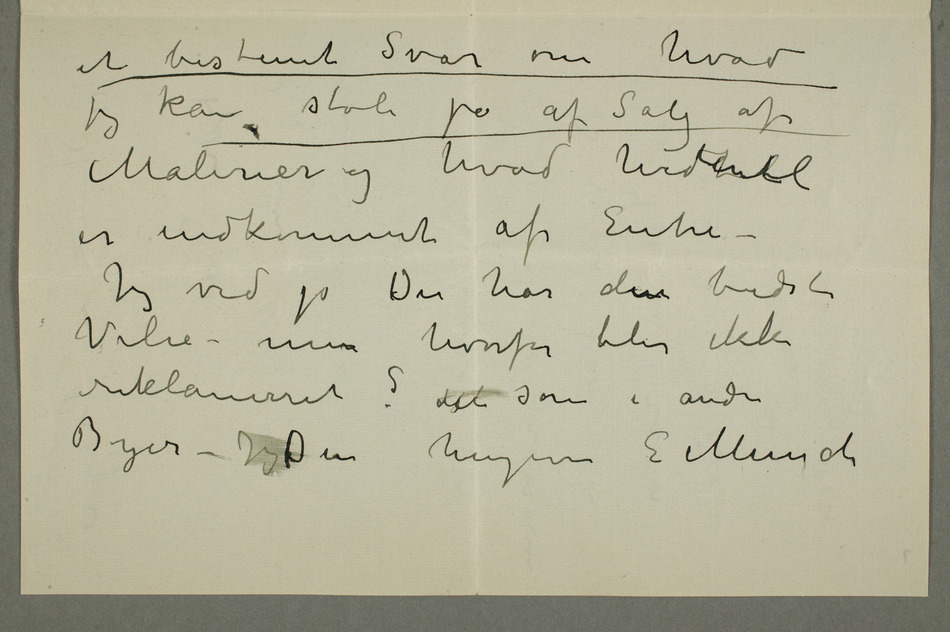 et bestemt Svar om hvad
jeg kan stole på af Salg af
Malerier og hvad hidtil
er indkommet af Entre –
Jeg ved jo Du har den bedste
Vilie – men hvorfor blir ikke
reklamerret? det som i andre
Byer – Din hengivne E Munch